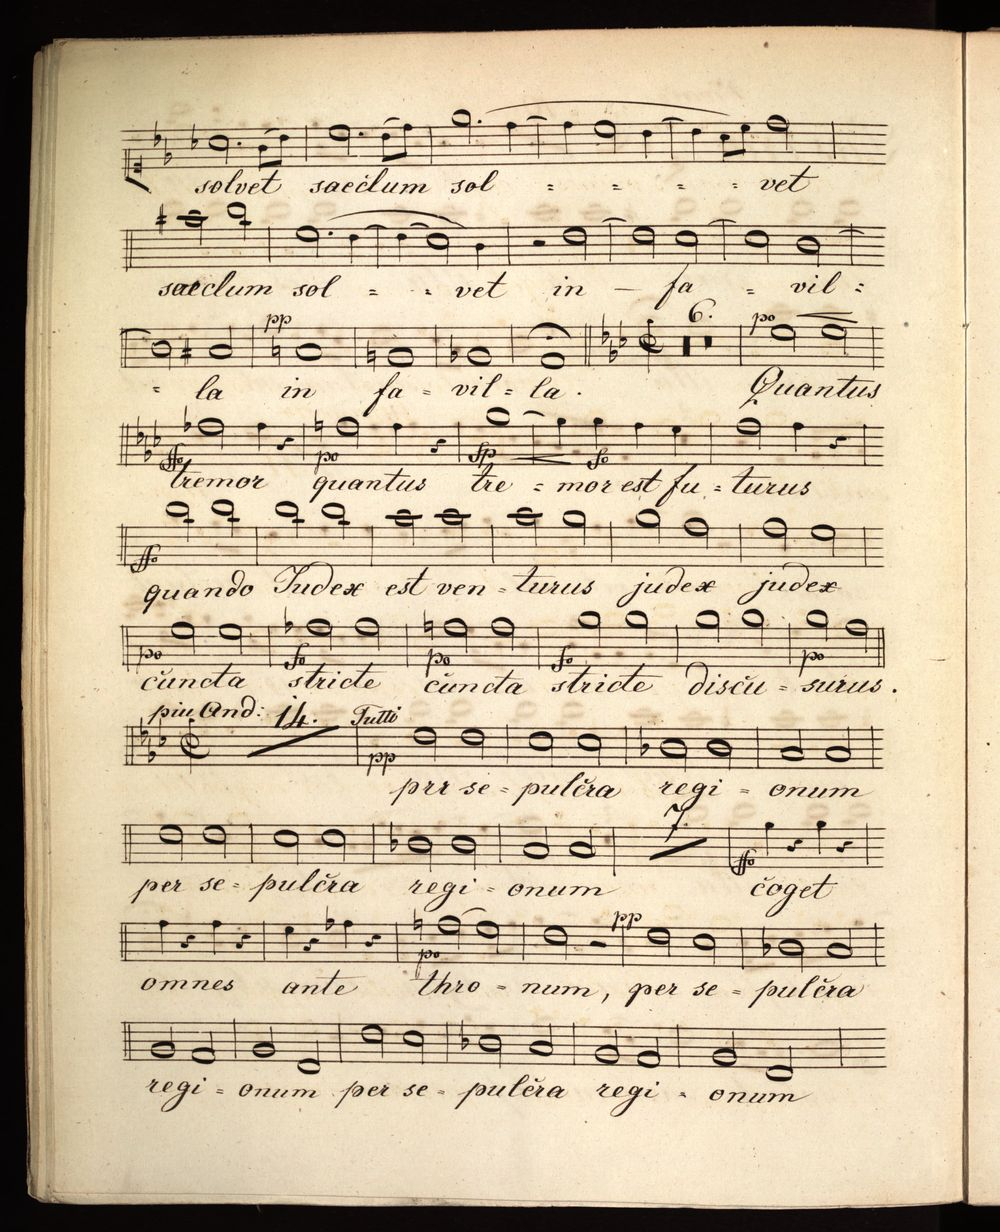 solvet saeclum sol = = = = vet
saeclum sol = = vet in – fa = vil =
pp 6. po
= la in fa = vil = la . Quantus
ffo po sfp fo
tremor quantus tre = mor est fu = turus
ffo
quando Iudex est ven = turus judex judex
po fo po fo po
cŭncta stricte cŭncta stricte discŭ = surus .
piu And: 14. Tutti
pp
prr se = pulc̆ra regi = onum
7. ffo
per se = pulc̆ra regi = onum c̆oget
po pp
omnes ante thro = num, per se = pulc̆ra
regi = onum per se = pulc̆ra regi = onum